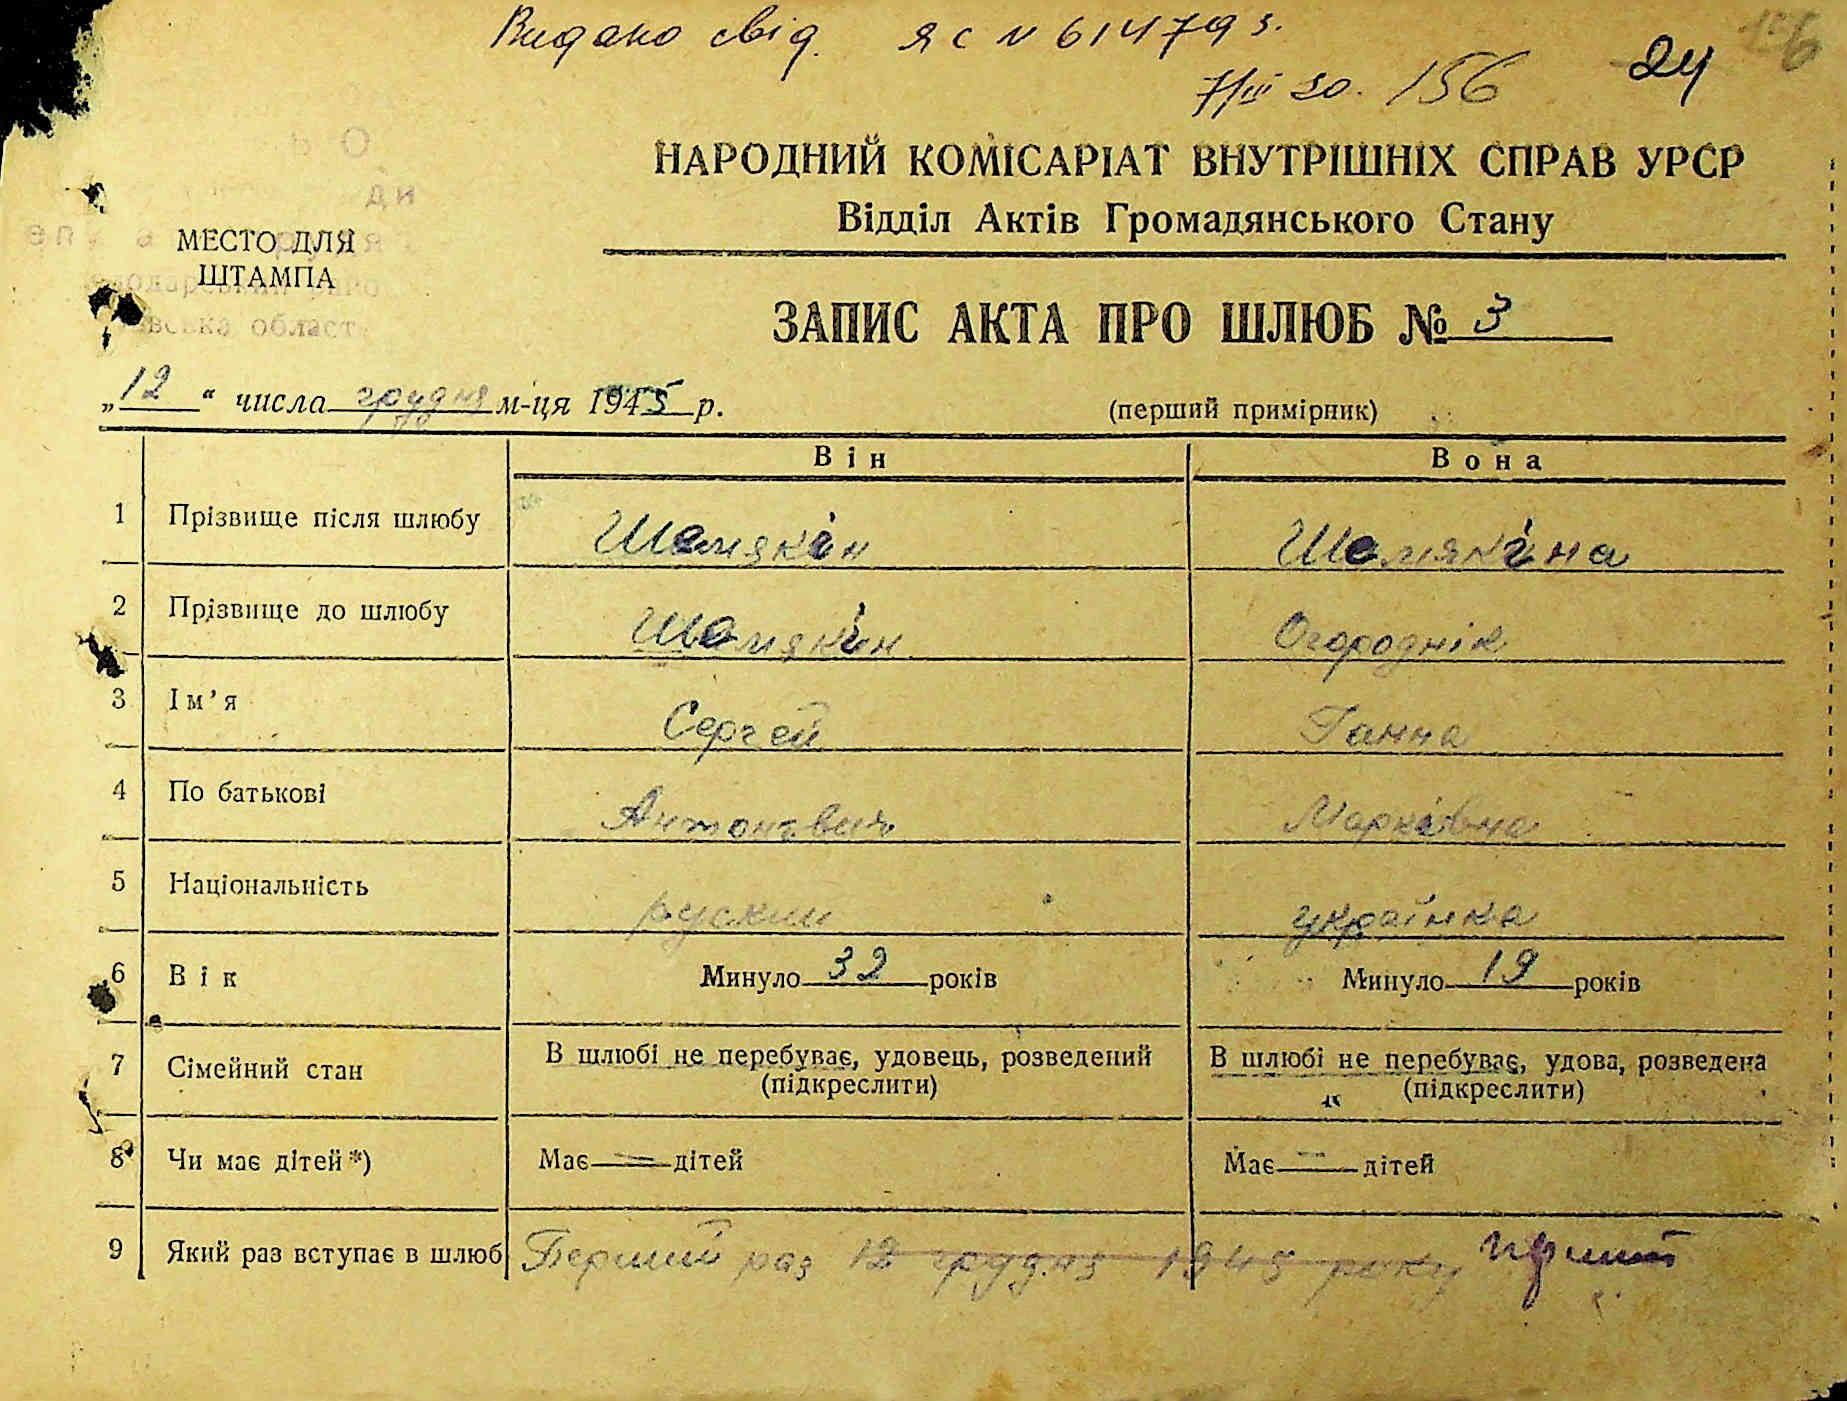 Видано свід. ЯС № 614793.
7/III 50. 156 24
НАРОДНИЙ КОМІСАРІАТ ВНУТРІШНІХ СПРАВ УРСР
Відділ Актів Громадянського Стану
МЕСТО ДЛЯ
ШТАМПА
ЗАПИС АКТА ПРО ШЛЮБ № 3
„12“ числа грудня м-ця 1945 р.
(перший примірник)
Він Вона
1 Прізвище після шлюбу Шемякін Шемякіна
2 Прізвище до шлюбу Шемякін Огороднік
3 Ім’я Сергей Ганна
4 По батькові Антонович Марківна
5 Національність руский українка
6 Вік Минуло 32 років Минуло 19 років
7 Сімейний стан В шлюбі не перебуває, удовець, розведений (підкреслити) В шлюбі не перебуває, удова, розведена (підкреслити)
8 Чи має дітей*) Має — дітей Має — дітей
9 Який раз вступає в шлюб Перший раз 12 грудня 1945 року перший